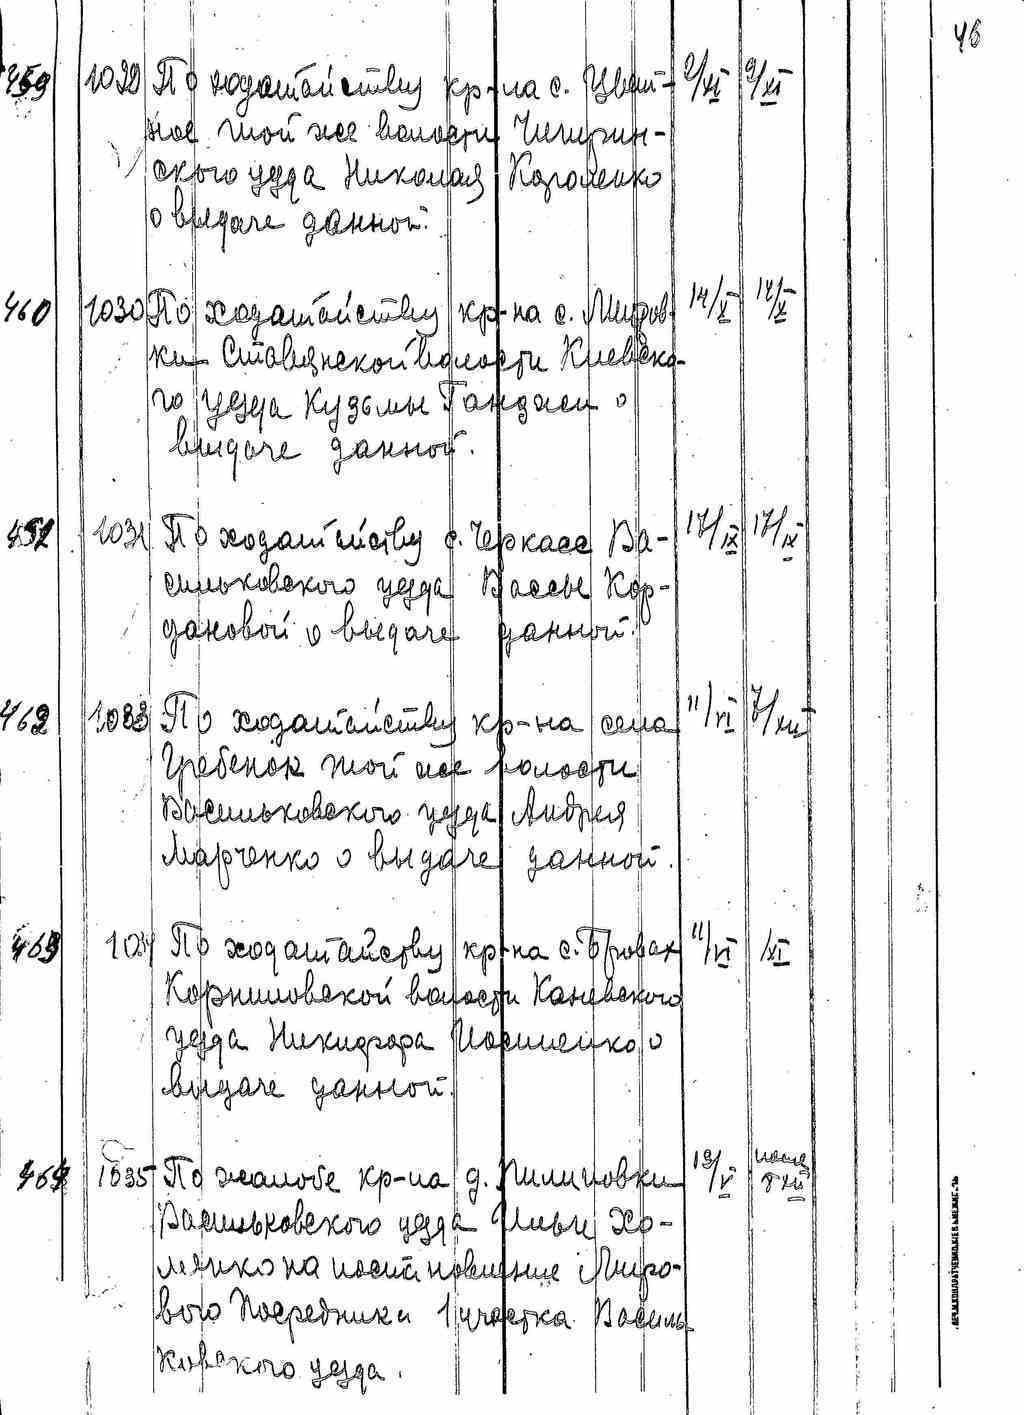 46
459 1029 По ходатайству кр-на с. Цвет- 9/XI 9/XI
ное той же волости Чигирин-
ского уезда Николая Короленко
о выдаче данной.
460 1030 По ходатайству кр-на с. Миров- 14/X 14/X
ки Ставянской волости Киевско-
го уезда Кузьмы Гандаси о
выдаче данной.
1031 По ходатайству с. Черкасс Ва- 17/IX 17/IX
сильковского уезда Вассы Кор-
дановой о выдаче данной.
462 1033 По ходатайству кр-на села 11/VI 7/XII
Гребенок той же волости
Васильковского уезда Андрея
Марченко о выдаче данной.
463 1034 По ходатайству кр-на с. Бровах 11/VI /XI
Корниловской волости Каневского
уезда Никифора Иосипенко о
выдаче данной.
464 1035 По жалобе кр-на д. Пилиповки 19/V после
Васильковского уезда Ильи Хо- 8 XII
менко на постановление Миро-
вого Посредника 1 участка Василь-
ковского уезда.